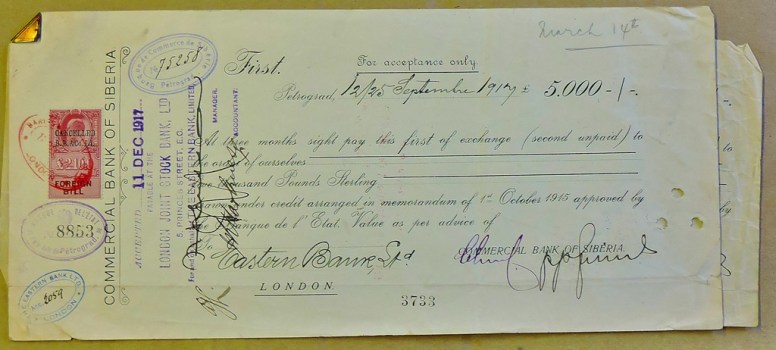 March 14th
First.
For acceptance only.
Petrograd, 12/25 Septembre 1917 £ 5.000-/-.
At three months sight pay this first of exchange (second unpaid) to
the order of ourselves
Five thousand Pounds Sterling
drawn under credit arranged in memorandum of 1st October 1915 approved by
Banque de l'Etat. Value as per advice of
To
Eastern Bank, Ltd
LONDON.
COMMERCIAL BANK OF SIBERIA.
3733
COMMERCIAL BANK OF SIBERIA
CANCELLED
FOREIGN
BILL
8853
Petrograd
EASTERN BANK LTD
2059
LONDON
ACCEPTED 11 DEC 1917
PAYABLE AT THE
LONDON JOINT STOCK BANK, LTD
5, PRINCES STREET, E.C.
EASTERN BANK, LIMITED
MANAGER.
ACCOUNTANT.
de Commerce de
No 75258
Petrograd